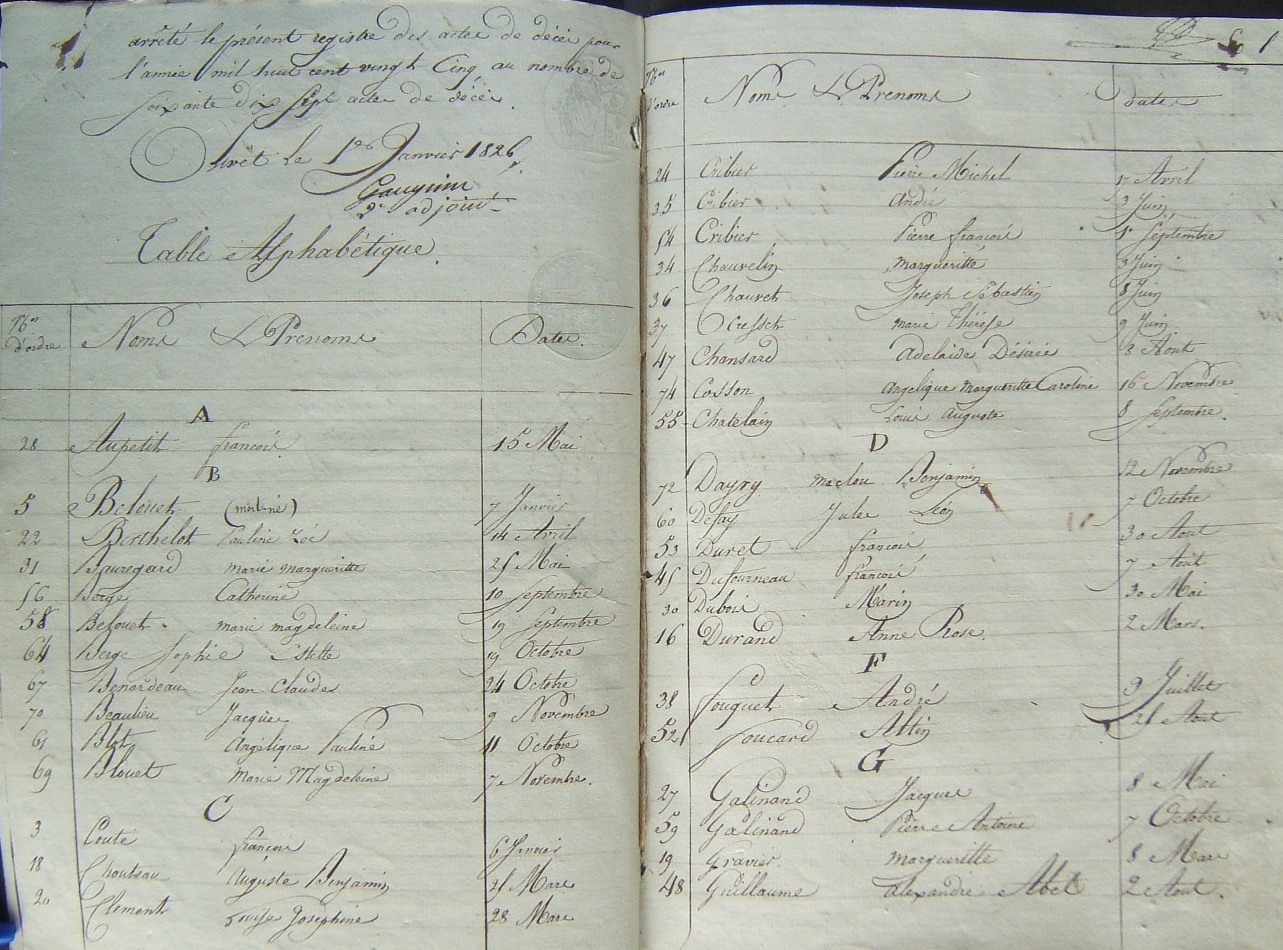 arrêté le présent registre des actes de décès pour
l'année mil huit cent vingt Cinq au nombre de
soixante dix Sept actes de décès.
Olivet le 1er Janvier 1826
2e adjoint
Table Alphabétique.
Nos d'ordre Noms & Prenoms Dates.
A
28 Aupetit françois 15 Mai
B
5 Belouet (mort-né) 7 Janvier
22 Berthelot Pauline Zoé 14 Avril
31 Bauregard marie margueritte 25 Mai
56 Berge Catherine 10 Septembre
58 Belouet marie magdeleine 19 Septembre
64 Berge Sophie Estelle 19 Octobre
67 Benardeau Jean Claude 24 Octobre
70 Beaulieu Jacques 9 Novembre
61 Blot Angélique Pauline 11 Octobre
69 Blouet Marie Magdeleine 7 Novembre.
C
3 Couté françois 6 Janvier
18 Chouteau Auguste Benjamin 21 Mars
20 Clement Louise Josephine 28 Mars
fo 1
Nos d'ordre Noms & Prenoms dates
24 Cribier Pierre Michel 17 Avril
35 Cribier André 3 Juin
54 Cribier Pierre françois 1er Septembre
34 Chauvelin Margueritte 3 Juin
36 Chauvet Joseph Sébastien 8 Juin
37 Marie Thérèse 9 Juin
47 Chansard Adelaide Désirée 8 Aout
74 Cosson Angelique Margueritte Caroline 16 Novembre
55 Chatelain Louis Auguste 8 Septembre.
D
72 Dayry maclou Benjamin 12 Novembre
60 Defay Jules Léon 7 Octobre
53 Duret françois 30 Aout
45 Dufourneau françois 7 Août
30 Dubois Marin 30 Mai
16 Durand Anne Rose. 2 Mars.
F
38 fouquet André 9 Juillet
52 foucard Altin 21 Aout
G
27 Galinand Jacques 8 Mai
59 Galinand Pierre Antoine 7 Octobre
19 Gravier Margueritte 8 Mars
48 Guillaume alexandre Abel 2 Aout.